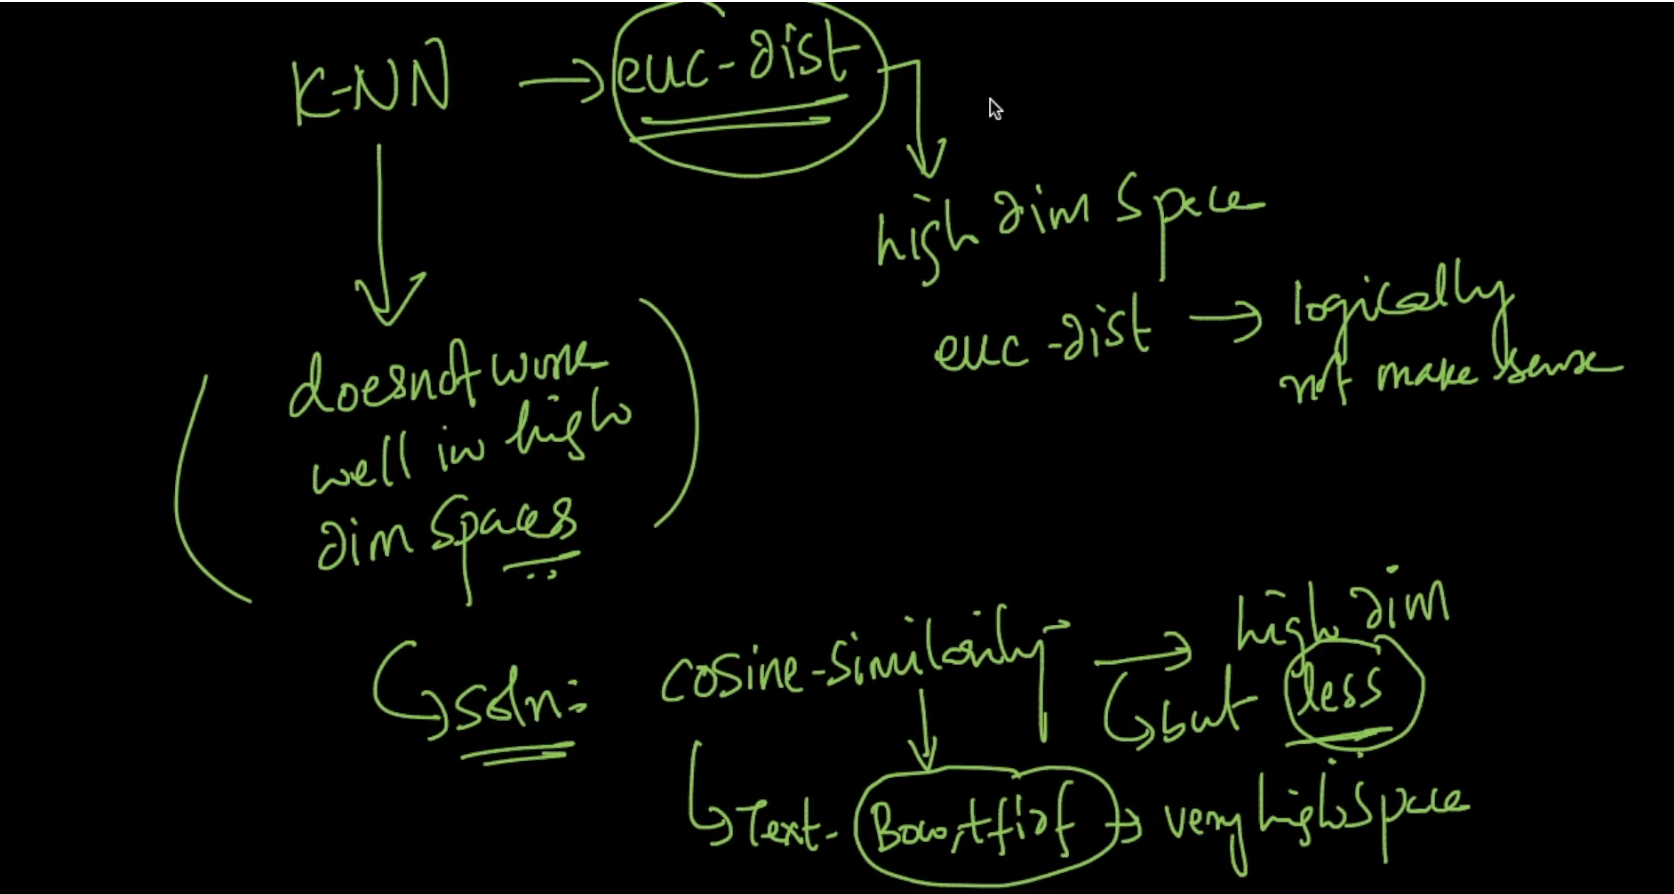 K-NN → euc-dist
high dim space
euc-dist → logically
not make sense
doesnot work
well in high
dim spaces
soln:
cosine-similarity → high dim
but less
Text- Bow,tfidf → very high space